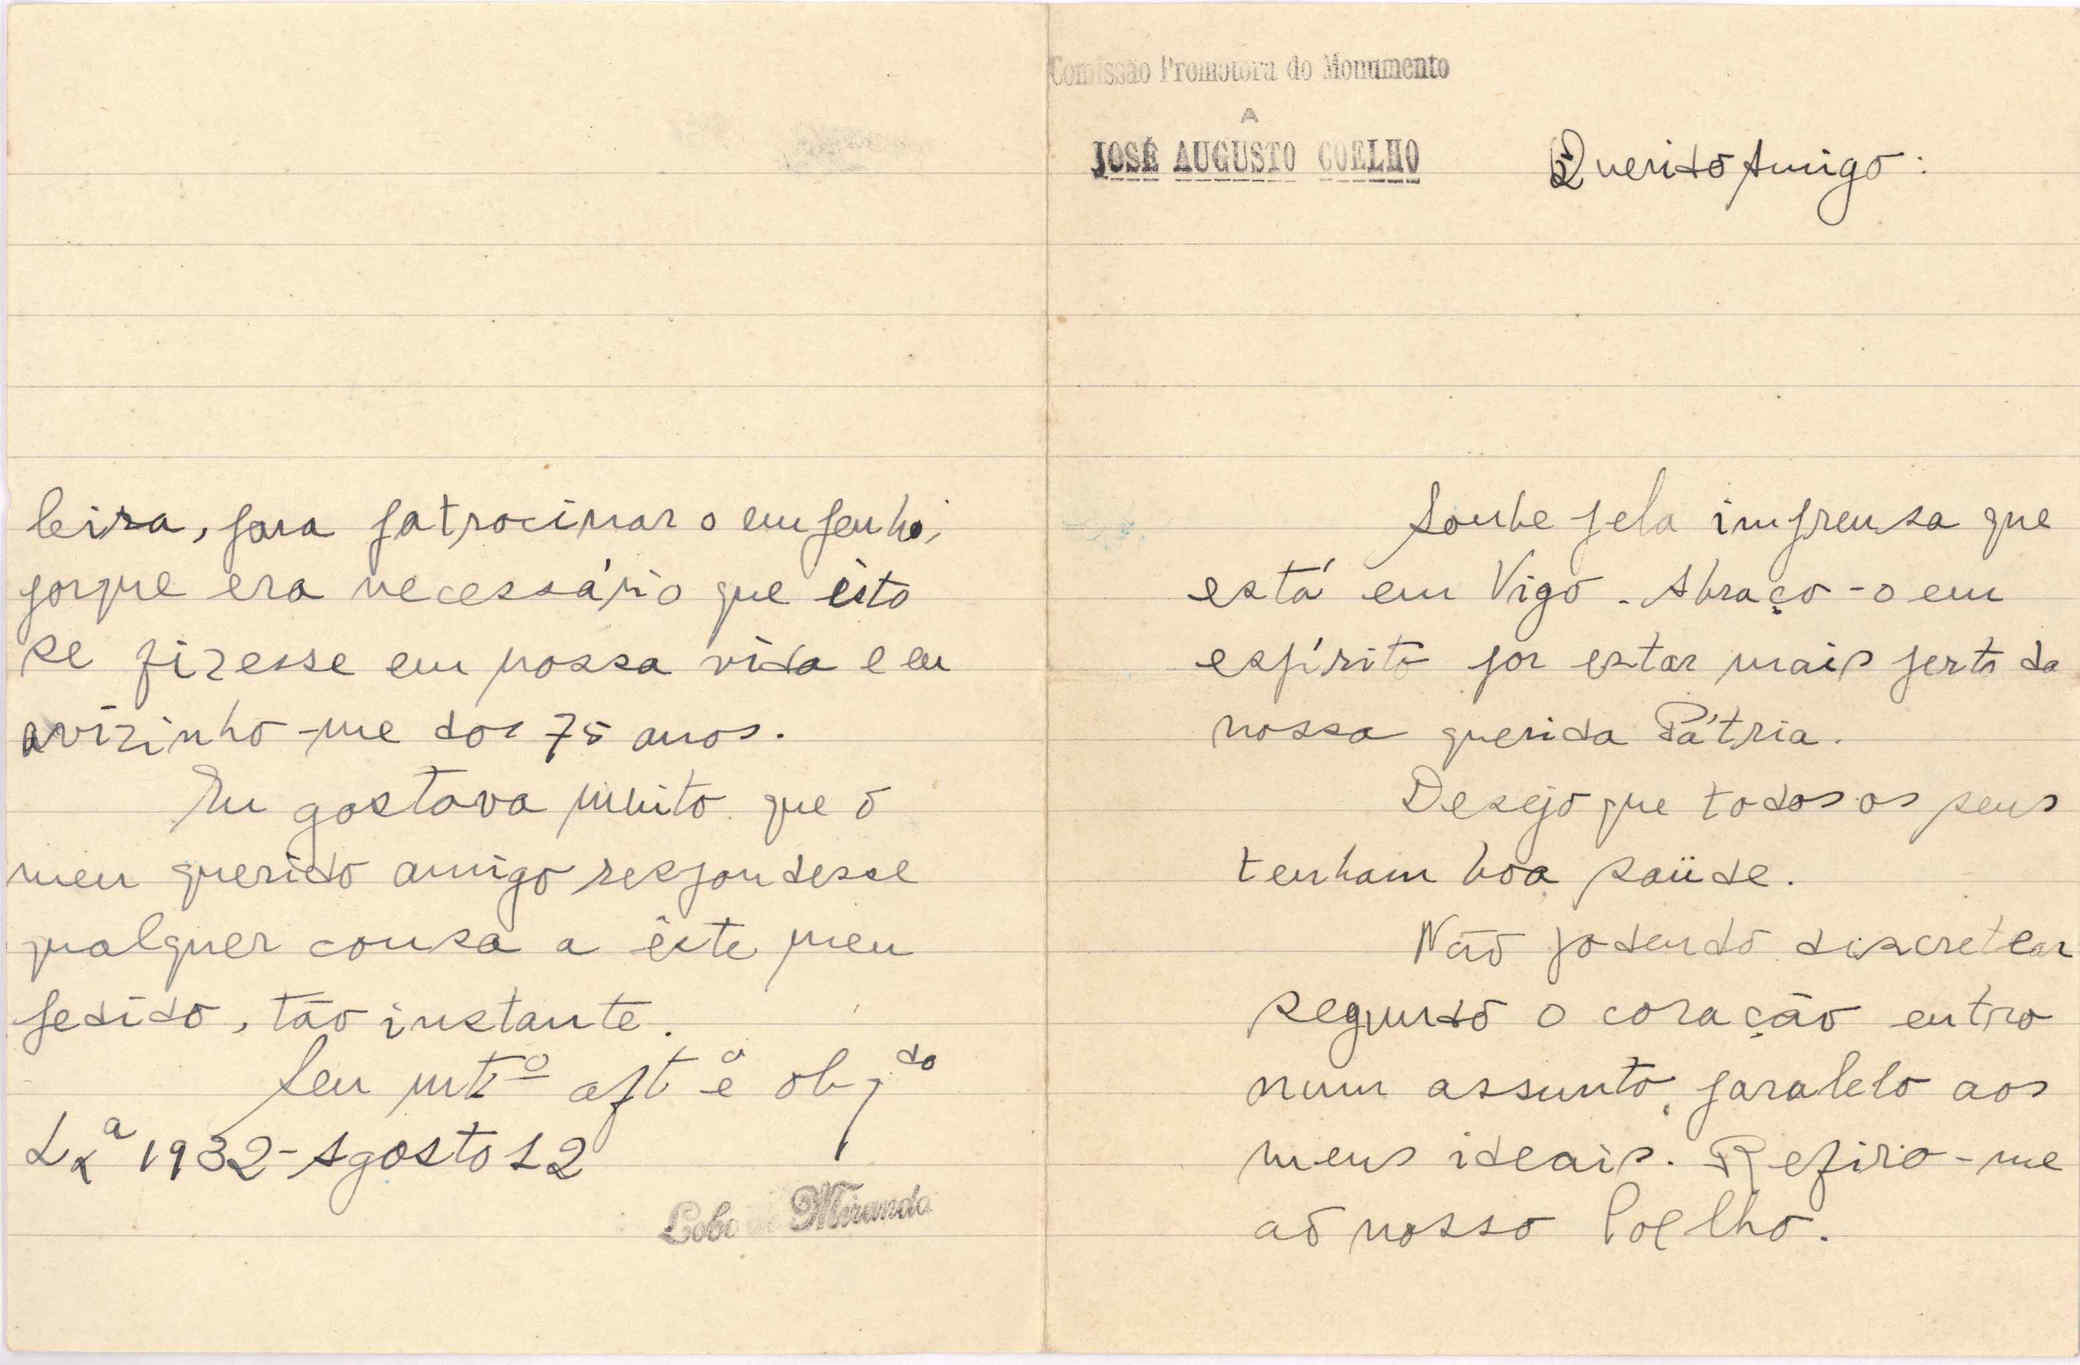 Comissão Promotora do Monumento
A
JOSÉ AUGUSTO COELHO
Querido Amigo:
Soube pela imprensa que
está em Vigo. Abraço-o em
espírito por estar mais perto da
nossa querida Pátria.
Desejo que todos os seus
tenham boa saüde.
Não podendo discretear
segundo o coração entro
num assunto, paralelo aos
meus ideais. Refiro-me
ao nosso Coelho.
leira, para patrocinar o empenho,
porque era necessário que isto
se fizesse em nossa vida e eu
avizinho-me dos 75 anos.
Eu gostava muito que o
meu querido amigo respondesse
qualquer cousa a êste meu
pedido, tão instante.
Seu mtº aftº e obgdo
Lxª 1932-Agosto 12
Lobo de Miranda